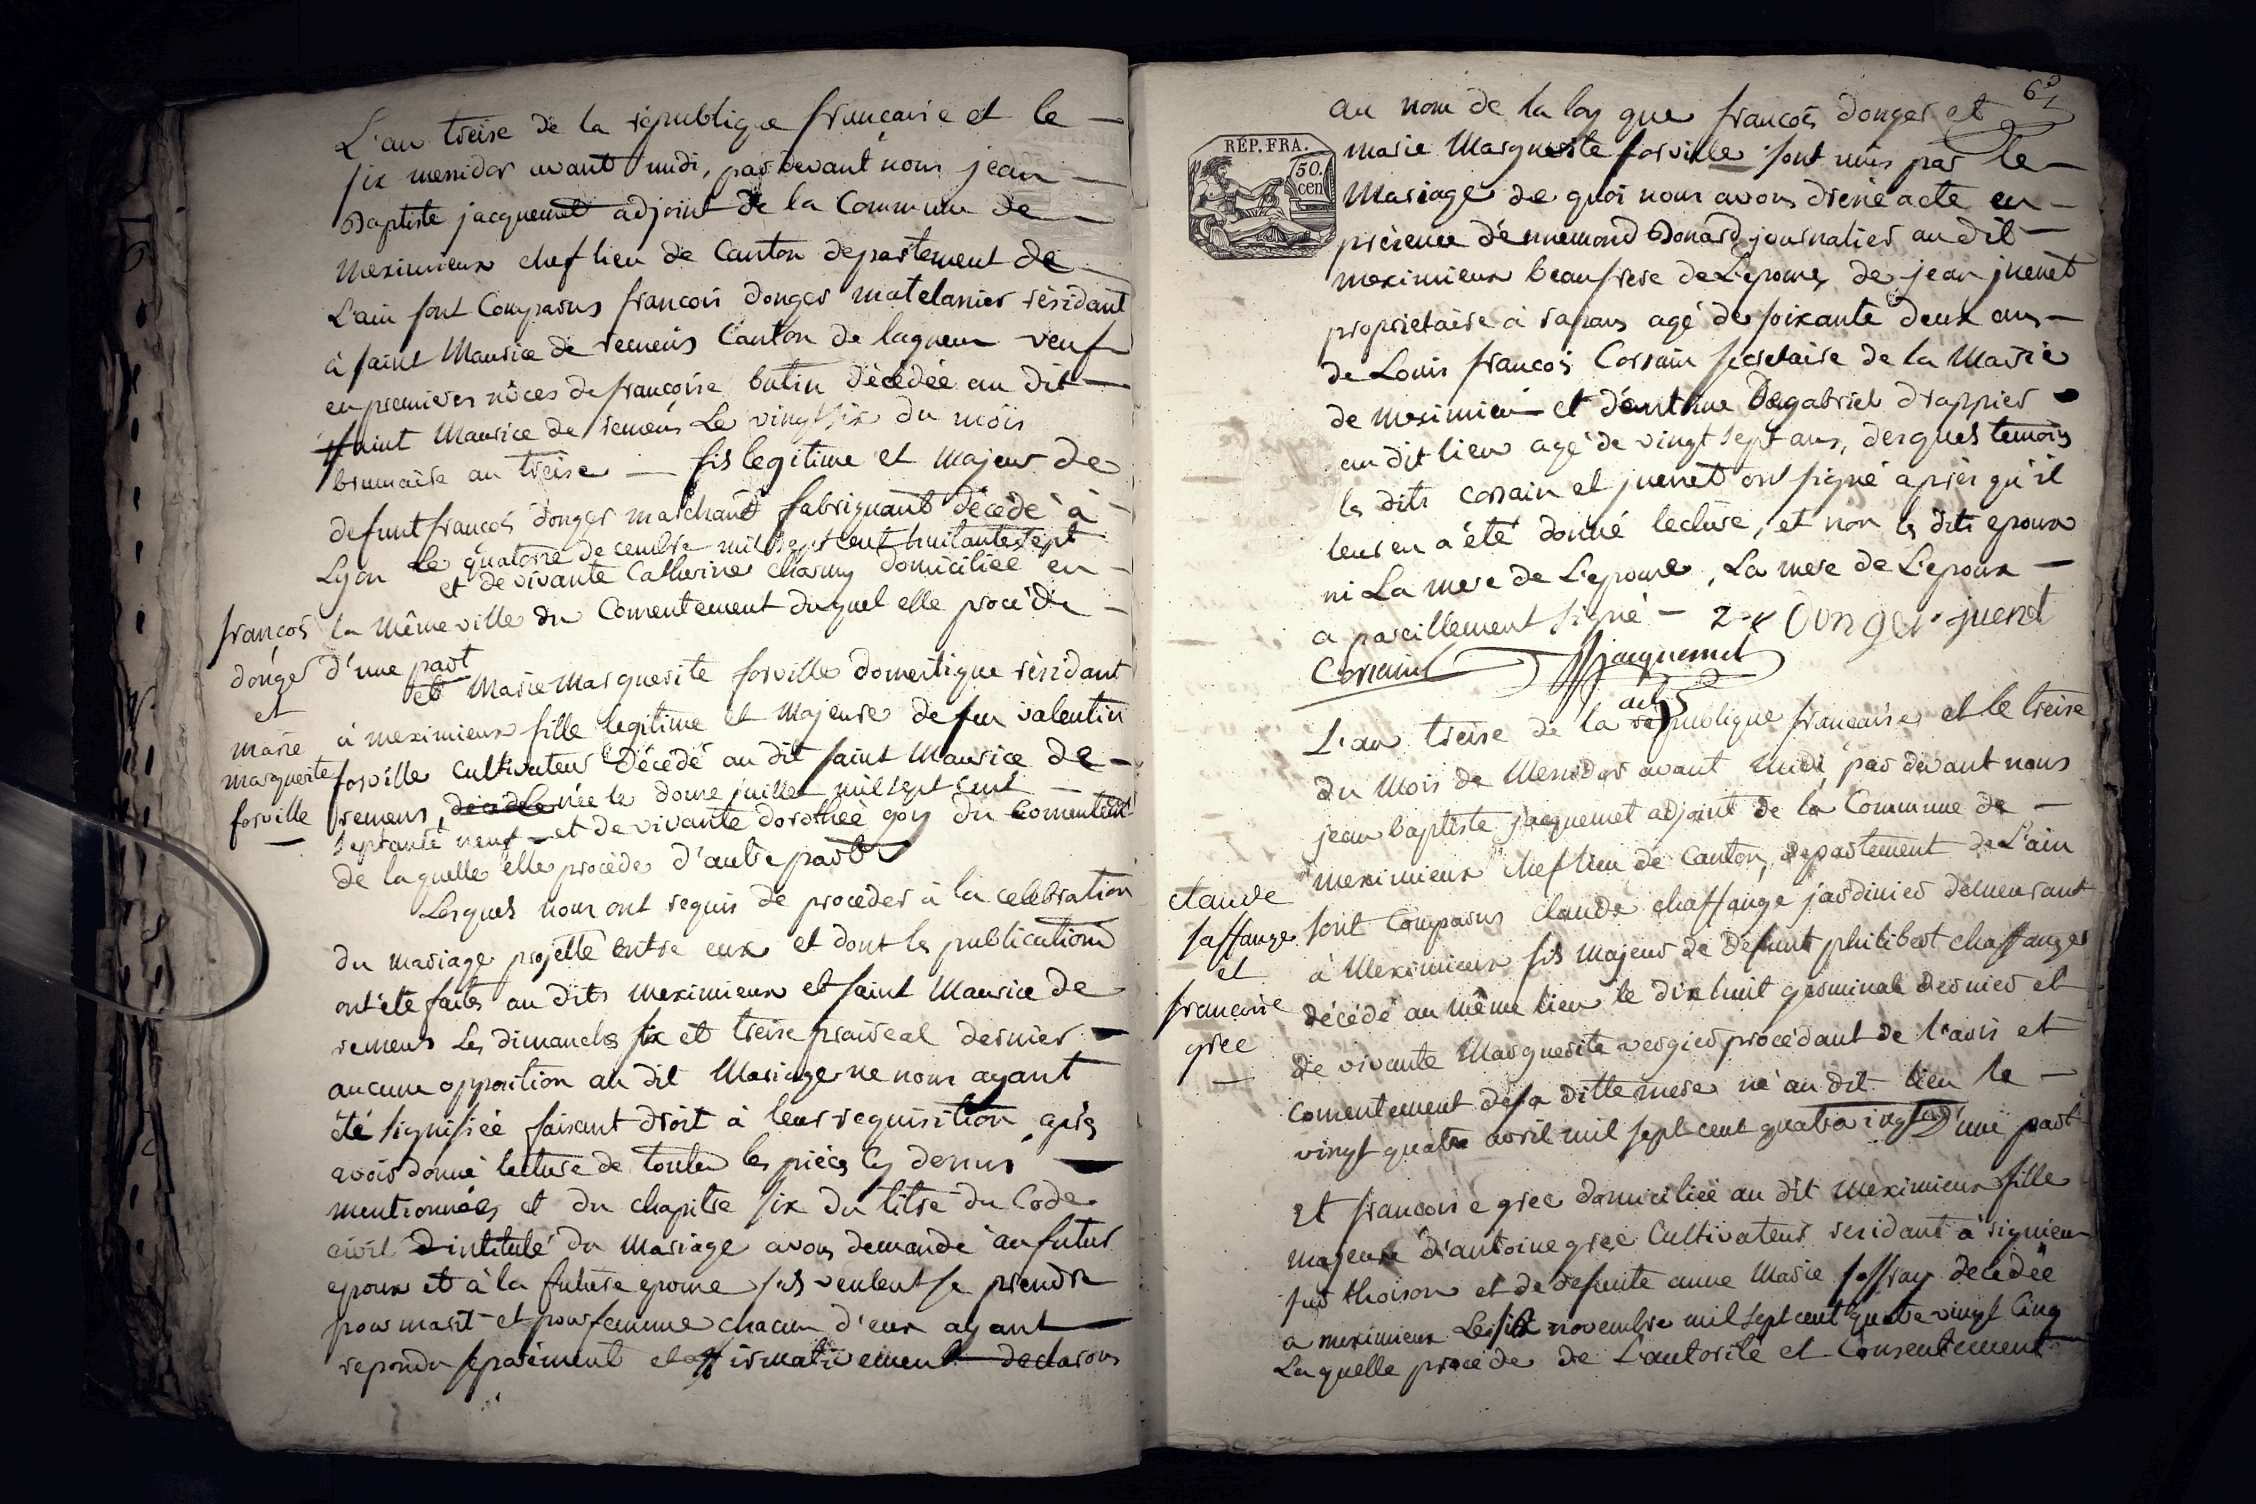 L'an treise de la république francaise et le —
six messidor avant midi, pardevant nous jean —
Baptiste jacquemet adjoint de la Commune de —
meximieux chef lieu de Canton departement de —
L'ain sont Comparus francois donger matelassier résidant
à saint Maurice de remens Canton de lagneux veuf
en premieres nôces de francoise butin décédée au dit —
saint Maurice de remens Le vingt six du mois
brumaire an treise — fils legitime et majeur de
defunt francois donger marchand fabriquant décédé à —
Lyon le quatorse decembre mil sept cent huitante sept
et de vivante Catherine charmy domiciliée en —
la même ville du Consentement duquel elle procède —
d'une part
et Marie Marguerite forville domestique résidant
à meximieux fille legitime et Majeure de feu valentin
forville Cultivateur Décédé au dit saint Maurice de —
remens, née le douse juillet mil sept cent —
septante neuf — et de vivante dorothée goy du consentement
de laquelle elle procède d'autre part
françois
donger
et
marie
marguerite
forville
—
Lesquels nous ont requis de proceder à la celebration
du mariage projetté entre eux et dont les publications
ont été faites au dits meximieux et saint Maurice de
remens Les dimanches six et treise prairéal dernier —
aucune opposition au dit Mariage ne nous ayant
été signifiée faisant droit à leur requisition, après
avoir donné lecture de toutes les pièces cy dessus —
mentionnées et du chapitre six du titre du Code
civil intitulé du Mariage avons demandé au futur
epoux et à la future epouse s'ils veulent se prendre
pour marit et pour femme chacun d'eux ayant —
repondu separément et affirmativement declarons
63
au nom de la loy que francois donger et
RÉP. FRA.
50.
cen
marie Marguerite forville sont unis par le —
Mariage de quoi nous avons dréssé acte en —
présence d'ennemond Donard journalier au dit —
meximieux beaufrere de L'epouse, de jean juenet
proprietaire à rapans agé de soixante deux ans —
de Louis francois Corsain secretaire de la Mairie
de meximieux et d'antoine Degabriel drappier
au dit lieu agé de vingt sept ans, desquels temoins
les dits Corsain et juenet ont signé après qu'il
leur en a été donné lecture, et non les dits epoux
ni La mere de L'epouse, La mere de L'epoux —
a pareillement signé — Donger juenet
Corsain Jacquemet
adj
L'an treise de la république francaise et le treise
du Mois de Messidor avant midi, pardevant nous
jean baptiste jacquemet adjoint de la Commune de —
meximieux chef lieu de Canton, departement de L'ain
sont Comparus Claude chaffange jardinier demeurant
à Meximieux fils majeur de Defunt philibert chaffanges
décédé au même lieu le dix huit germinal dernier et
de vivante Marguerite vergier procédant de l'avis et
consentement de sa ditte mere né au dit lieu le —
vingt quatre avril mil sept cent quatre vingt D'une part
claude
saffange
et
francoise
gree
—
Et francoise gree domiciliée au dit meximieux fille
majeure d'antoine gree Cultivateur residant à rignieu
sur thoison et de defunte anne Marie joffray decedée
a meximieux Le six novembre mil sept cent quatre vingt Cinq
Laquelle procède de L'autorité et Consentement